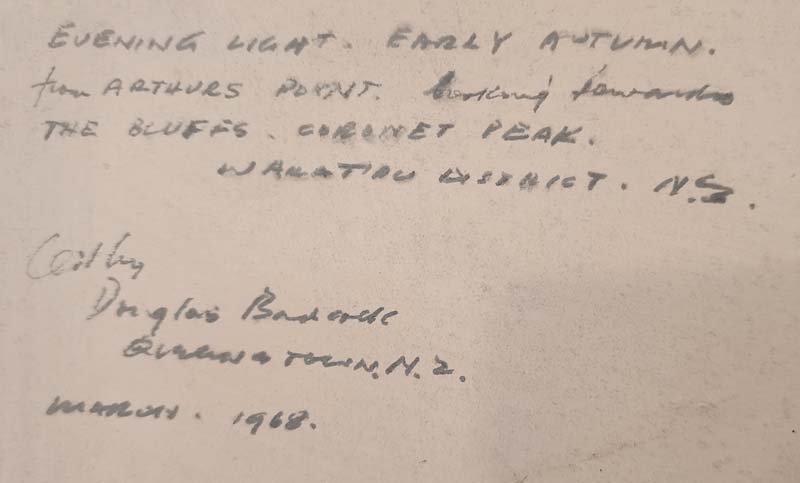 EVENING LIGHT. EARLY AUTUMN.
from ARTHURS POYNT. looking towards
THE BLUFFS. CORONET PEAK.
WAKATIPU DISTRICT. N.Z.
Oil by
Douglas Badcock
QUEENSTOWN. N.Z.
MARCH. 1968.